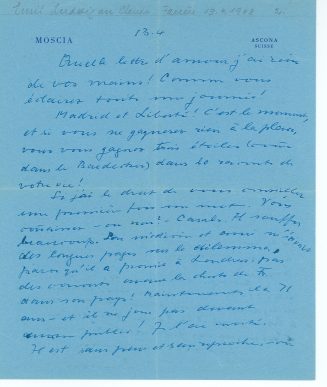 Emil Ludwig an 13.4.1948 2.
MOSCIA
ASCONA
SUISSE
13.4
Quelle lettre d'amour j'ai
de vos mains! Comme vous
éclairez toute ma journée!
Madrid et Liberté! C'est le moment,
et si vous ne gagnerez rien à la place,
vous vous gagnez trois étoiles (comme
dans le Baedeker) dans le
votre vie!
Si j'ai le droit de vous conseiller
une première fois un mot. Vous
- ou non? - Casals. Il souffre
beaucoup. Son médecin et ami m'
des longues pages sur le dilemme,
parce qu'il a promis à Londres: pas
des concerts avant la chute de Fr.
dans son pays! Maintenant il a 71
ans - et il ne joue pas devant
public! Je l'ai invité.
Il est sans peur et sans reproche, -